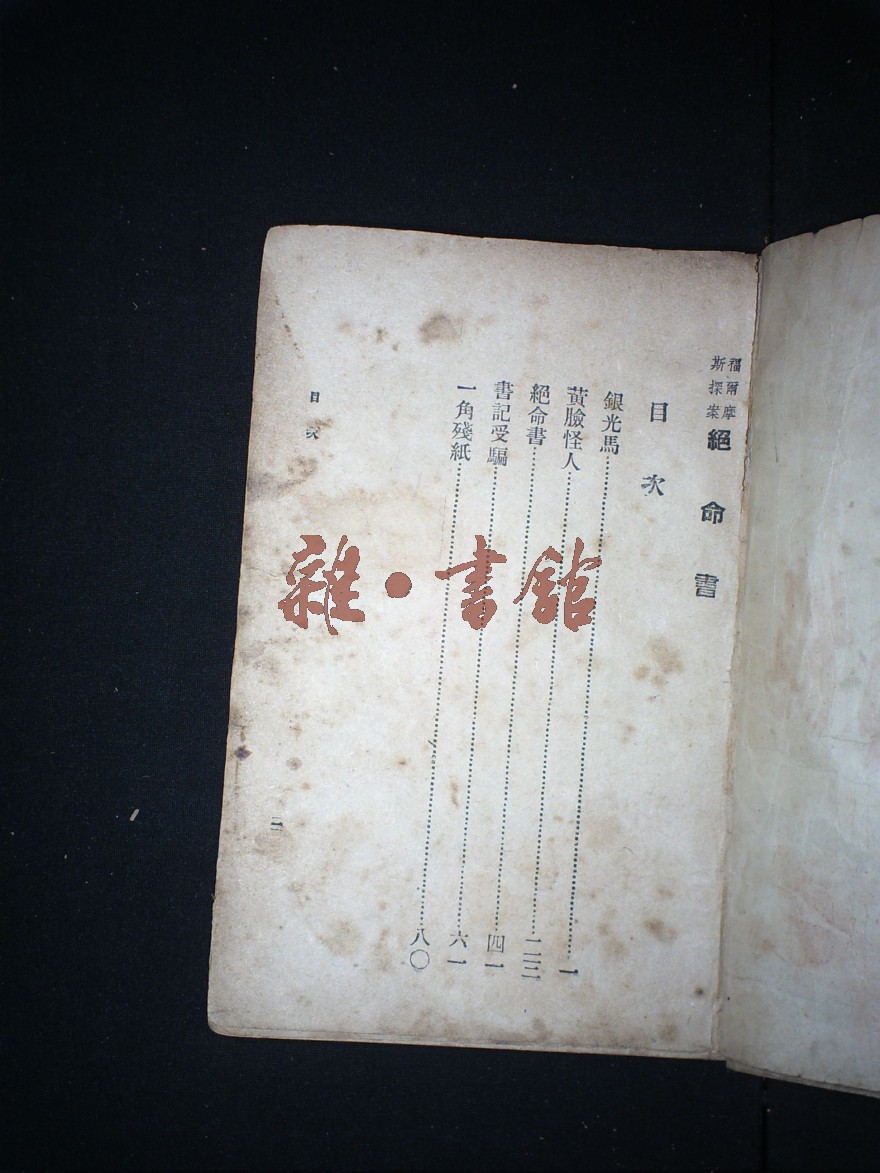 福爾摩斯探案 絕命書
目次
銀光馬……一
黃臉怪人……二三
絕命書……四一
書記受騙……六一
一角殘紙……八〇
目次
雜·書館